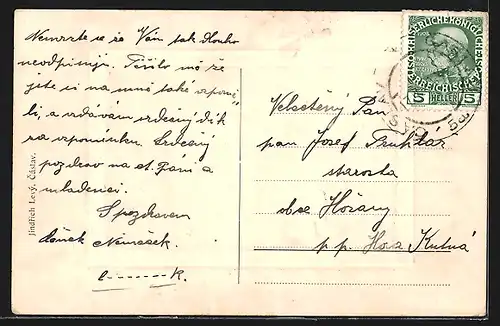 Nemrzte se že Vám tak dlouho
neodpisuji. Těšilo mě že
jste si na mně také vzpoměl
li, a vzdávám srdečný dík
za vzpomínku. Srdečný
pozdrav na st. Pání a
mládenci.
S pozdravem
Nemeček.
K.
Jindřich Levý, Čáslav.
KAISERLICHE KÖNIGLICHE
ÖSTERREICHISCHE
5 HELLER 5
Velectěný Pán
pan Josef Truhlář
starosta
obce Hořany
p. p. Hora Kutná